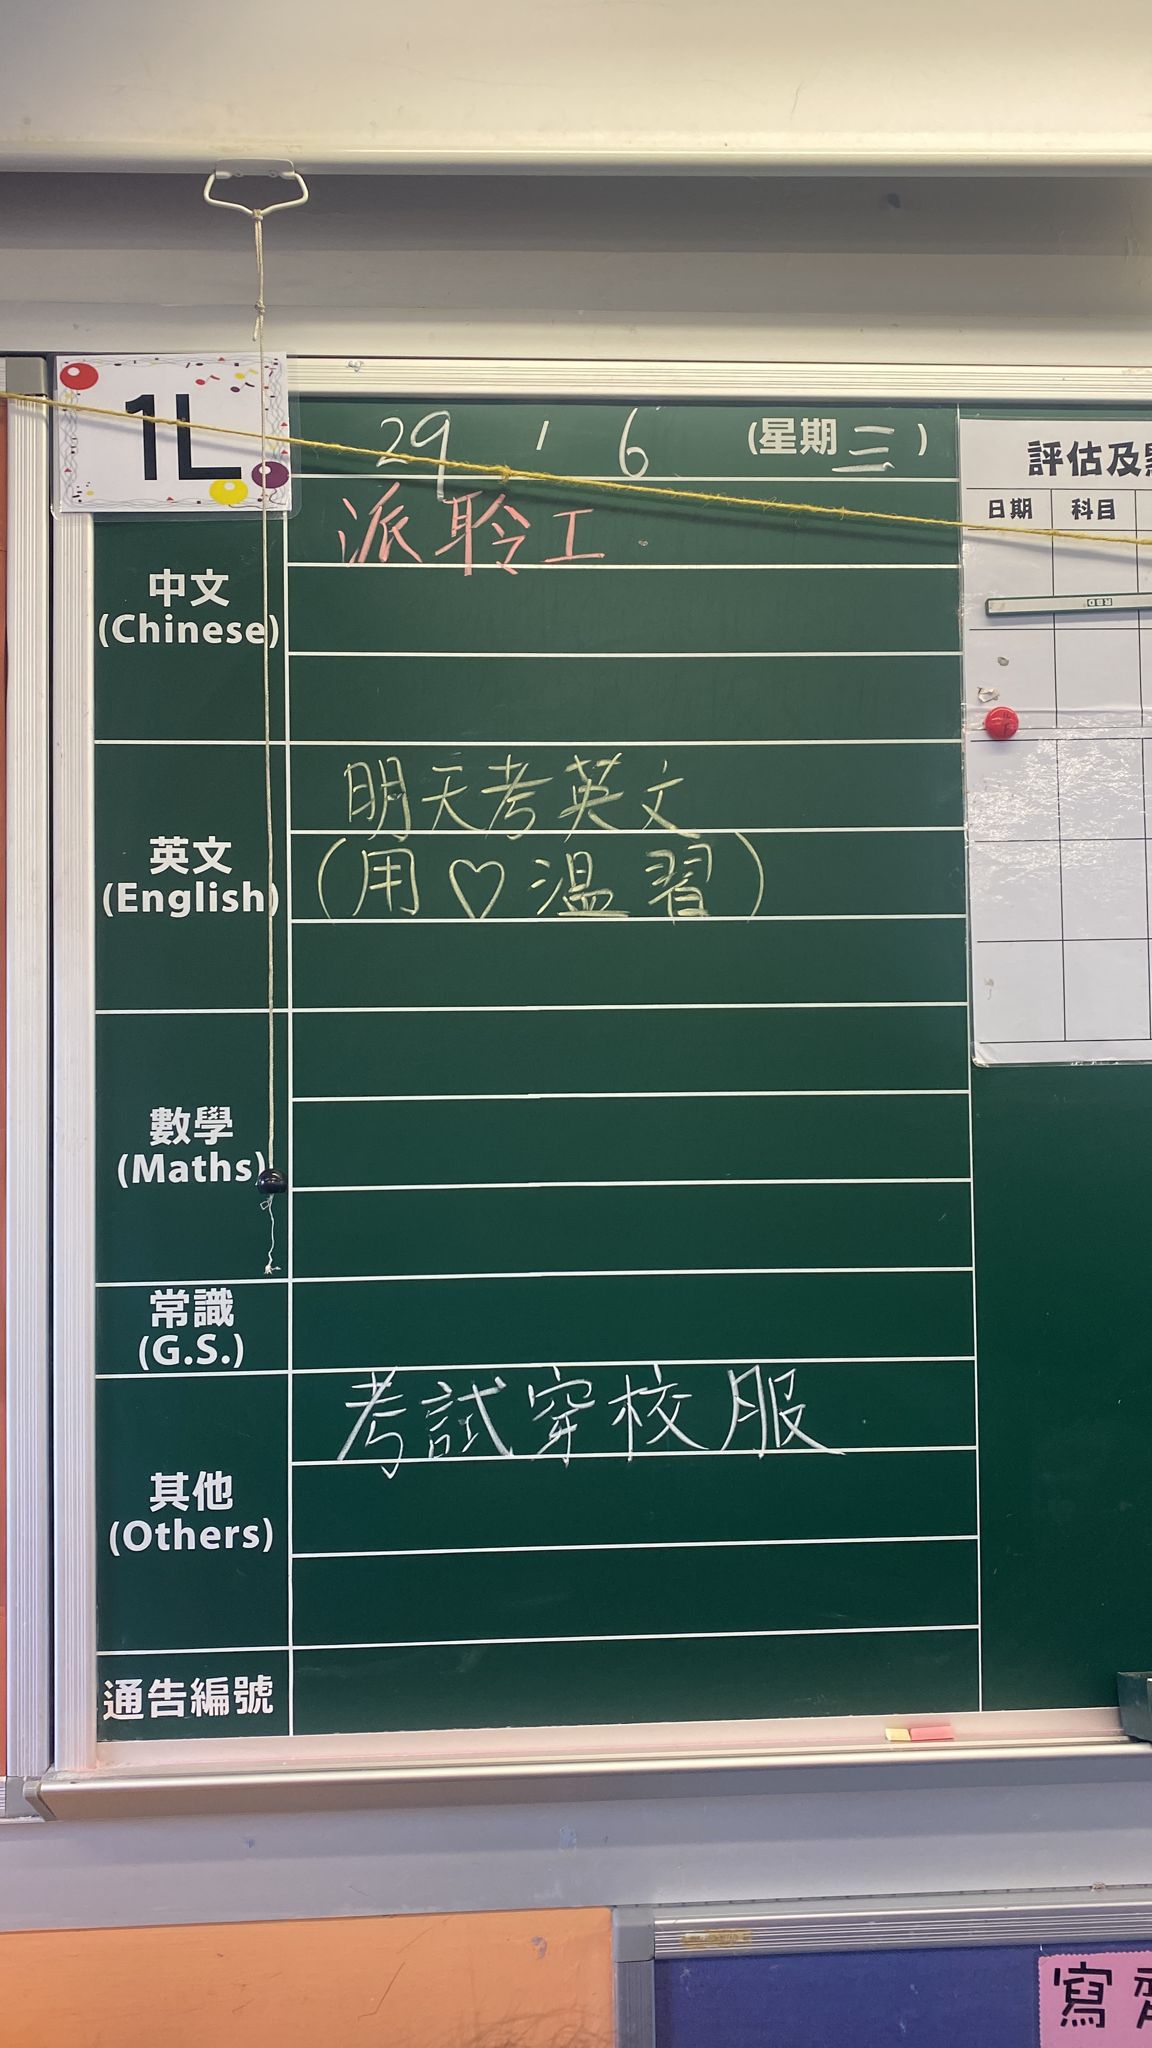 1L
29 / 6 (星期三)
派聆工
中文
(Chinese)
明天考英文
(用♡溫習)
英文
(English)
數學
(Maths)
常識
(G.S.)
考試穿校服
其他
(Others)
通告編號
評估及
日期 科目
寫